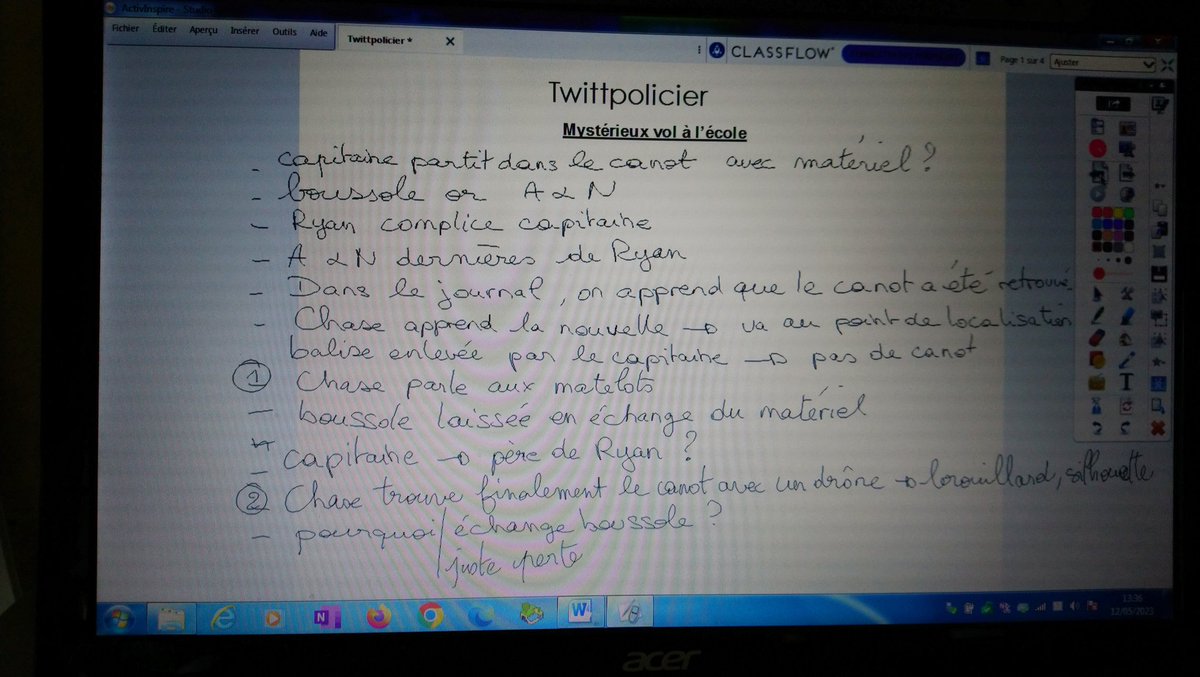 ActivInspire - Studio
Fichier Éditer Aperçu Insérer Outils Aide
Twittpolicier *
CLASSFLOW
Page 1 sur 4 Ajuster
Twittpolicier
Mystérieux vol à l'école
- capitaine partit dans le canot avec matériel ?
- boussole or A & N
- Ryan complice capitaine
- A & N dernières de Ryan
- Dans le journal, on apprend que le canot a été retrouvé
- Chase apprend la nouvelle → va au point de localisation
balise enlevée par le capitaine → pas de canot
① Chase parle aux matelots
- boussole laissée en échange du matériel
- capitaine → père de Ryan ?
② Chase trouve finalement le canot avec un drône → brouillard, silhouette
- pourquoi / échange boussole ?
/ juste perte
13:36
12/05/2023
acer